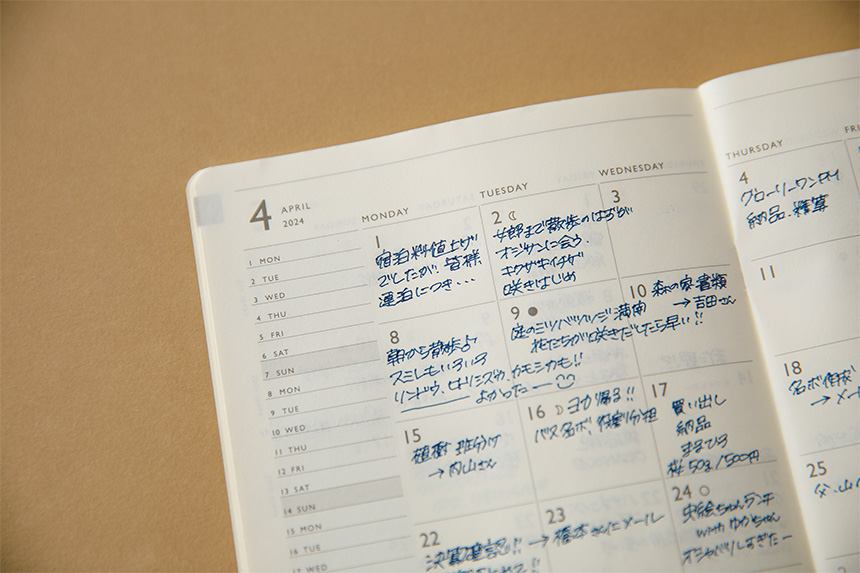 4 APRIL
2024
MONDAY
TUESDAY
WEDNESDAY
THURSDAY
1 MON
2 TUE
3 WED
4 THU
5 FRI
6 SAT
7 SUN
8 MON
9 TUE
10 WED
11 THU
12 FRI
13 SAT
14 SUN
15 MON
16 TUE
17 WED
1
宿泊料値上げ
でしたが、皆様
連泊につき・・・
2
女郎まで散歩のはずが
オジサンに会う。
キクザキイチゲ
咲きはじめ
3
4
グローリーワンデイ
納品・精算
8
朝から散歩♪
スミレもいろいろ
リンドウ、ヒメミズバ、カモシカも!!
よかったー
9
庭のミツバツツジ満開
桃たちが咲きだしたら早い!!
10
森の家書類
→吉田さん
11
15
植樹 班分け
→内山さん
16
ヨガ帰る!!
バス名ボ、役割分担
17
買い出し
納品
桜50g/500円
18
名ボ作成
→メー
22
決算確認!!
23
→橋本さんにメール
24
ちゃんランチ
with ゆかちゃん
オシャベリしすぎたー
25
父、山